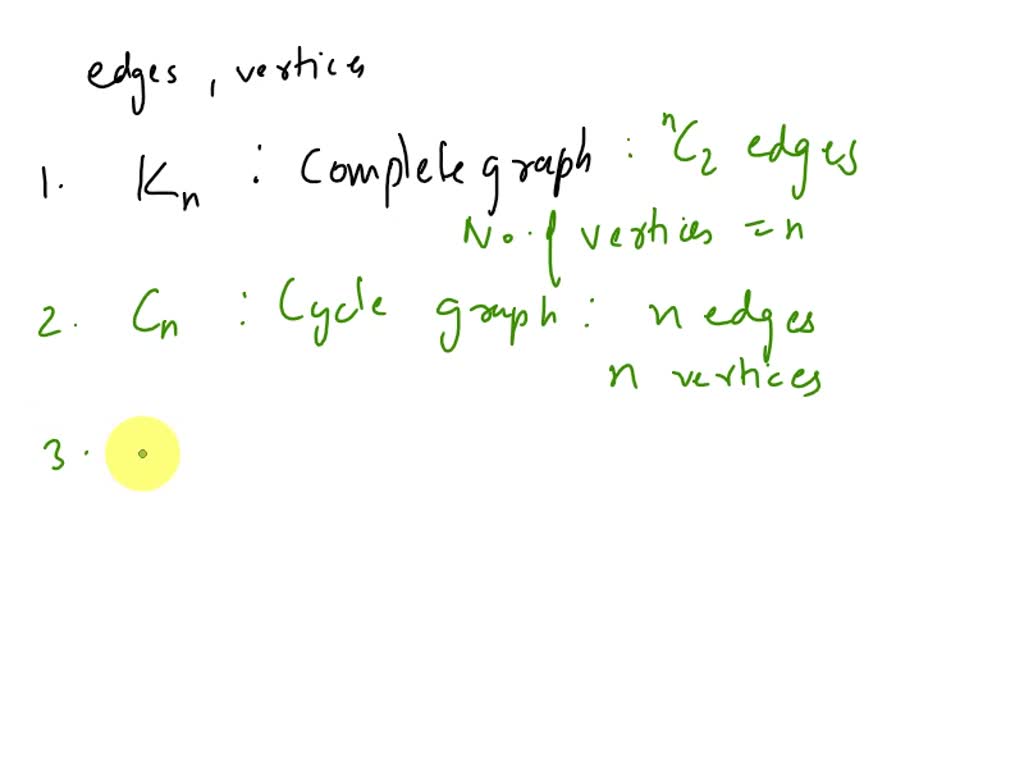 edges, vertices
1. Kn : Complete graph : nC2 edges
No. of vertices = n
2. Cn : Cycle graph : n edges
n vertices
3.